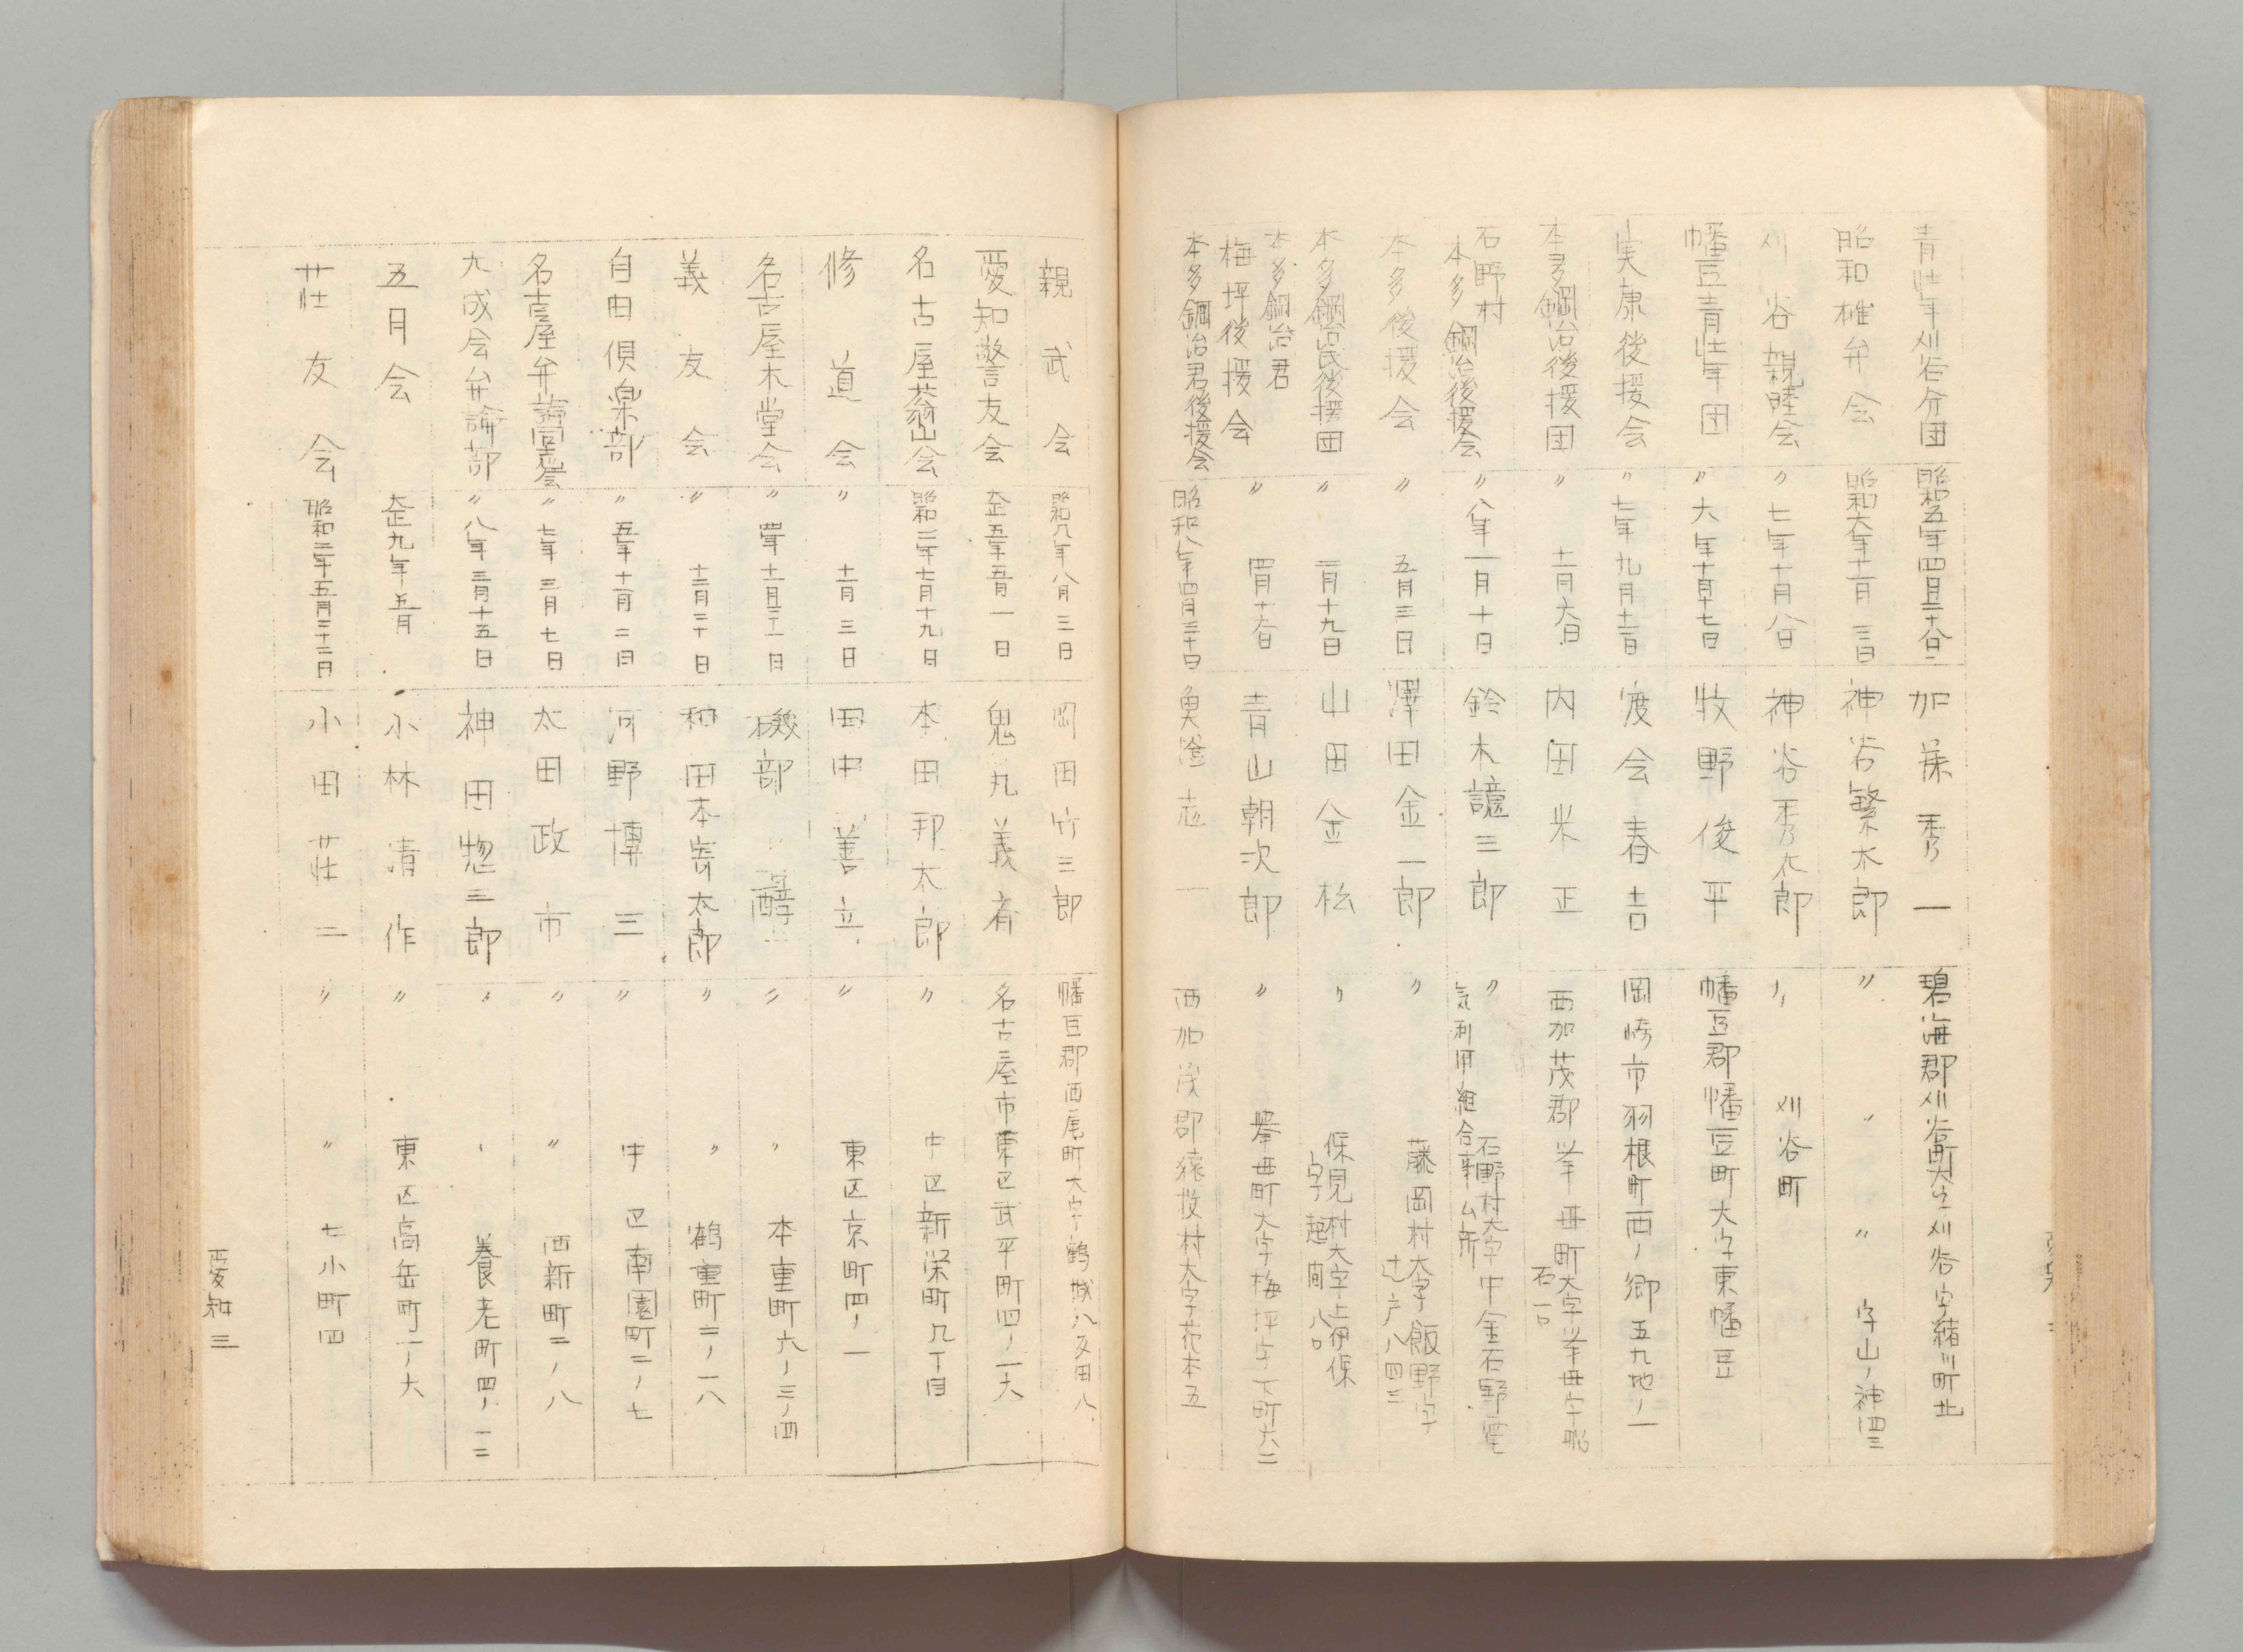 青壮年刈谷分団 昭和五年四月二十八日 加藤秀一 碧海郡刈谷町大字刈谷字緒川町北
昭和雄弁会 昭和六年十一月三日 神谷繁太郎 〃 〃 〃 字山ノ神四三
刈谷親睦会 〃七年十月八日 神谷秀太郎 〃 刈谷町
幡豆青壮年団 〃六年十月十七日 牧野俊平 幡豆郡幡豆町大字東幡豆
実康後援会 〃七年九月十一日 渡会春吉 岡崎市羽根町西ノ郷五九地ノ一
本多鋼治後援団 〃 十一月六日 内田米正 西加茂郡挙母町大字挙母字
石一口
石野村
本多鋼治後援会 〃八年一月十日 鈴木譲三郎 〃 石野村大字中金石野電
気利用組合事ム所
本多後援会 〃 五月三日 澤田金一郎 〃 藤岡村大字飯野字
辻ノ戸八四三
本多鋼治氏後援団 〃 一月十九日 山田金松 〃 保見村大字上伊保
字起間八口
本多鋼治君
梅坪後援会 〃 四月十八日 青山朝次郎 〃 挙母町大字梅坪字下町六二
本多鋼治君後援会 昭和八年四月三十日 魚澄 一 西加茂郡猿投村大字花本五
親武会 昭和八年八月三日 岡田竹三郎 幡豆郡西尾町大字鶴城八反田八
愛知警友会 大正五年五月一日 鬼丸義斎 名古屋市東区武平町四ノ一六
名古屋蓊山会 昭和二年七月十九日 本田邦太郎 〃 中区新栄町八丁目
修道会 〃 十一月三日 田中善立 〃 東区京町四ノ一
名古屋木堂会 〃四年十一月三十一日 磯部醇 〃 〃 本重町六ノ三ノ四
義友会 〃 十二月二十日 和田本寄太郎 〃 〃 鶴重町二ノ一八
自由倶楽部 〃五年十一月二日 河野博三 〃 中区南園町二ノ七
名古屋弁論同志会 〃七年三月七日 太田政市 〃 〃 西新町二ノ八
九成会弁論部 〃八年三月十五日 神田惣三郎 〃 〃 養老町四ノ一二
五月会 大正九年五月 小林清作 〃 東区高岳町一ノ六
荘友会 昭和二年五月二十二日 小田荘二 〃 〃 七小町四
愛知 三